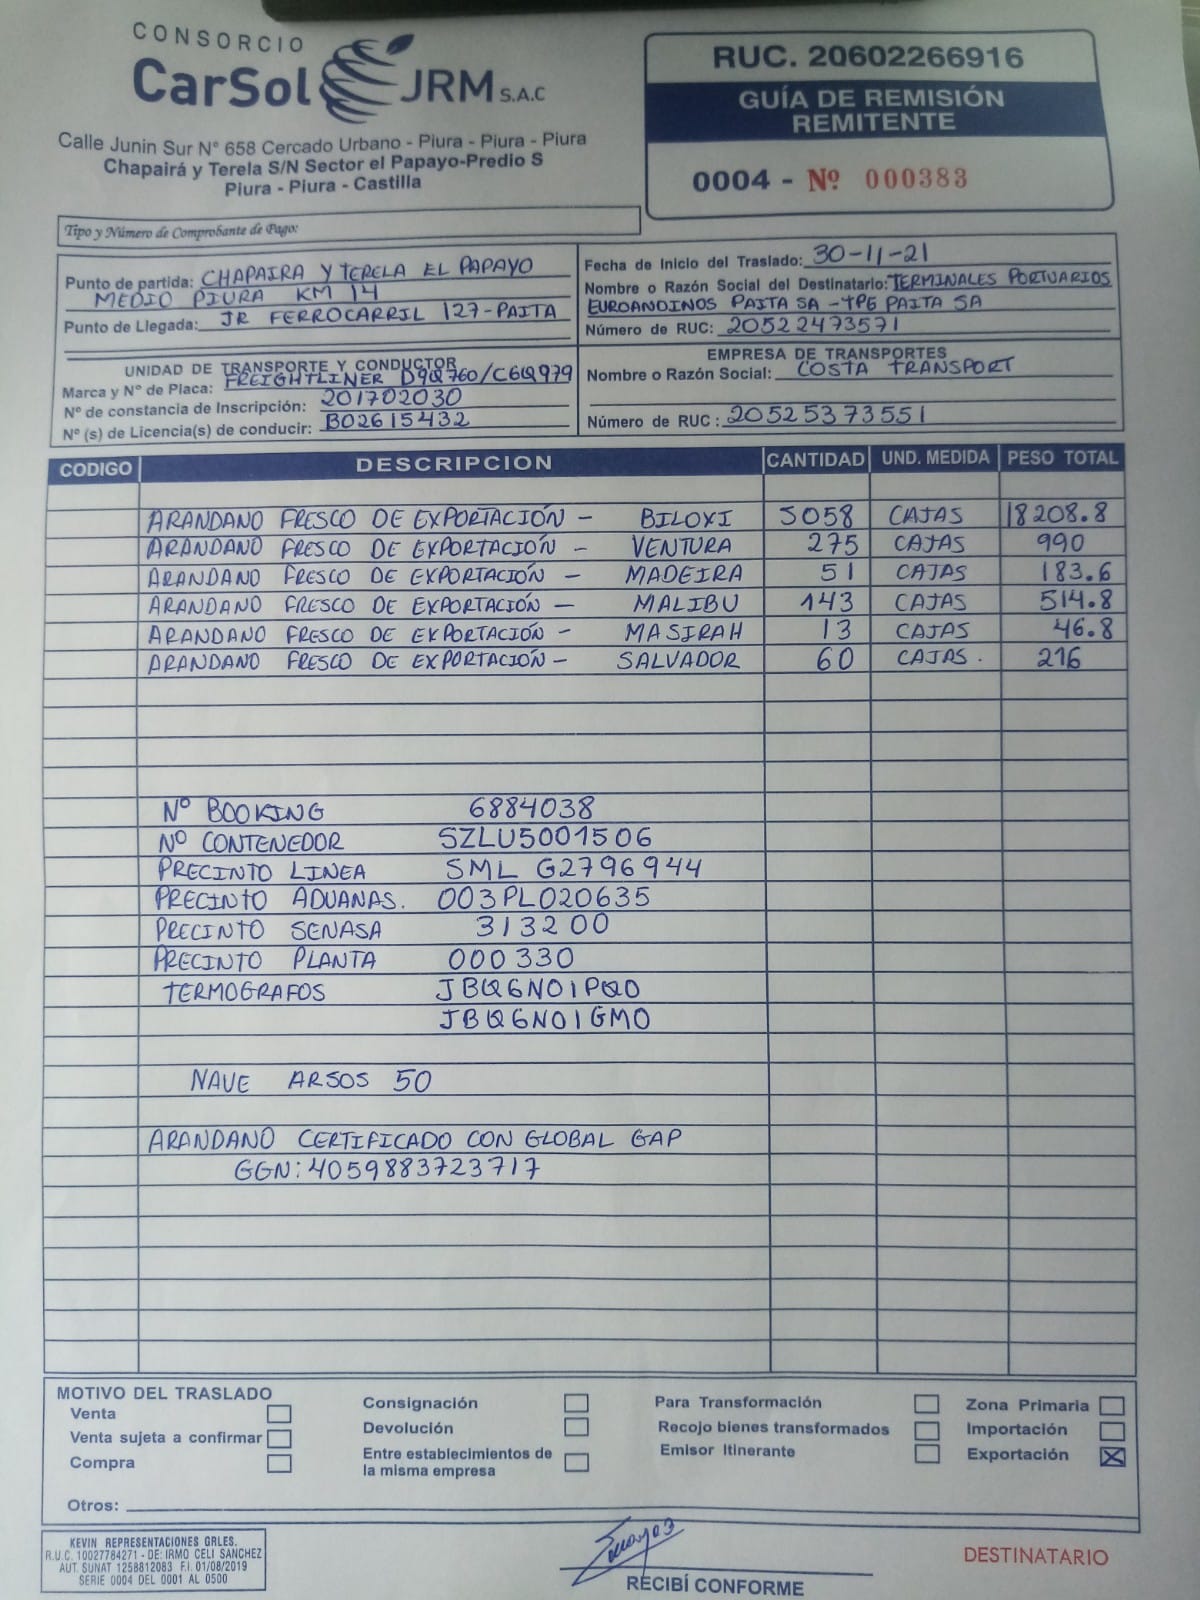 CONSORCIO
CarSol JRM S.A.C
Calle Junin Sur N° 658 Cercado Urbano - Piura - Piura - Piura
Chapairá y Terela S/N Sector el Papayo-Predio S
Piura - Piura - Castilla
RUC. 20602266916
GUÍA DE REMISIÓN
REMITENTE
0004 - Nº 000383
Tipo y Número de Comprobante de Pago:
Punto de partida: CHAPAIRA Y TERELA EL PAPAYO
MEDIO PIURA KM 14
Punto de Llegada: JR FERROCARRIL 127-PAITA
Fecha de Inicio del Traslado: 30-11-21
Nombre o Razón Social del Destinatario: TERMINALES PORTUARIOS
EUROANDINOS PAITA SA - TPE PAITA SA
Número de RUC: 20522473571
UNIDAD DE TRANSPORTE Y CONDUCTOR
Marca y N° de Placa: FREIGHTLINER D9Q760/C6Q979
N° de constancia de Inscripción: 201702030
N° (s) de Licencia(s) de conducir: B02615432
EMPRESA DE TRANSPORTES
Nombre o Razón Social: COSTA TRANSPORT
Número de RUC: 20525373551
CODIGO DESCRIPCION CANTIDAD UND. MEDIDA PESO TOTAL
ARANDANO FRESCO DE EXPORTACIÓN - BILOXI 5058 CAJAS 18208.8
ARANDANO FRESCO DE EXPORTACIÓN - VENTURA 275 CAJAS 990
ARANDANO FRESCO DE EXPORTACIÓN - MADEIRA 51 CAJAS 183.6
ARANDANO FRESCO DE EXPORTACIÓN - MALIBU 143 CAJAS 514.8
ARANDANO FRESCO DE EXPORTACIÓN - MASIRAH 13 CAJAS 46.8
ARANDANO FRESCO DE EXPORTACIÓN - SALVADOR 60 CAJAS. 216
N° BOOKING 6884038
N° CONTENEDOR SZLU5001506
PRECINTO LINEA SML G2796944
PRECINTO ADUANAS. 003PL020635
PRECINTO SENASA 313200
PRECINTO PLANTA 000330
TERMOGRAFOS JBQ6N01PQ0
JBQ6N01GM0
NAVE ARSOS 50
ARANDANO CERTIFICADO CON GLOBAL GAP
GGN: 4059883723717
MOTIVO DEL TRASLADO
Venta
Venta sujeta a confirmar
Compra
Consignación
Devolución
Entre establecimientos de
la misma empresa
Para Transformación
Recojo bienes transformados
Emisor Itinerante
Zona Primaria
Importación
Exportación X
Otros:
KEVIN REPRESENTACIONES GRLES.
R.U.C. 10027784271 - DE: IRMO CELI SANCHEZ
AUT. SUNAT 1258812083 F.I. 01/08/2019
SERIE 0004 DEL 0001 AL 0500
RECIBÍ CONFORME
DESTINATARIO